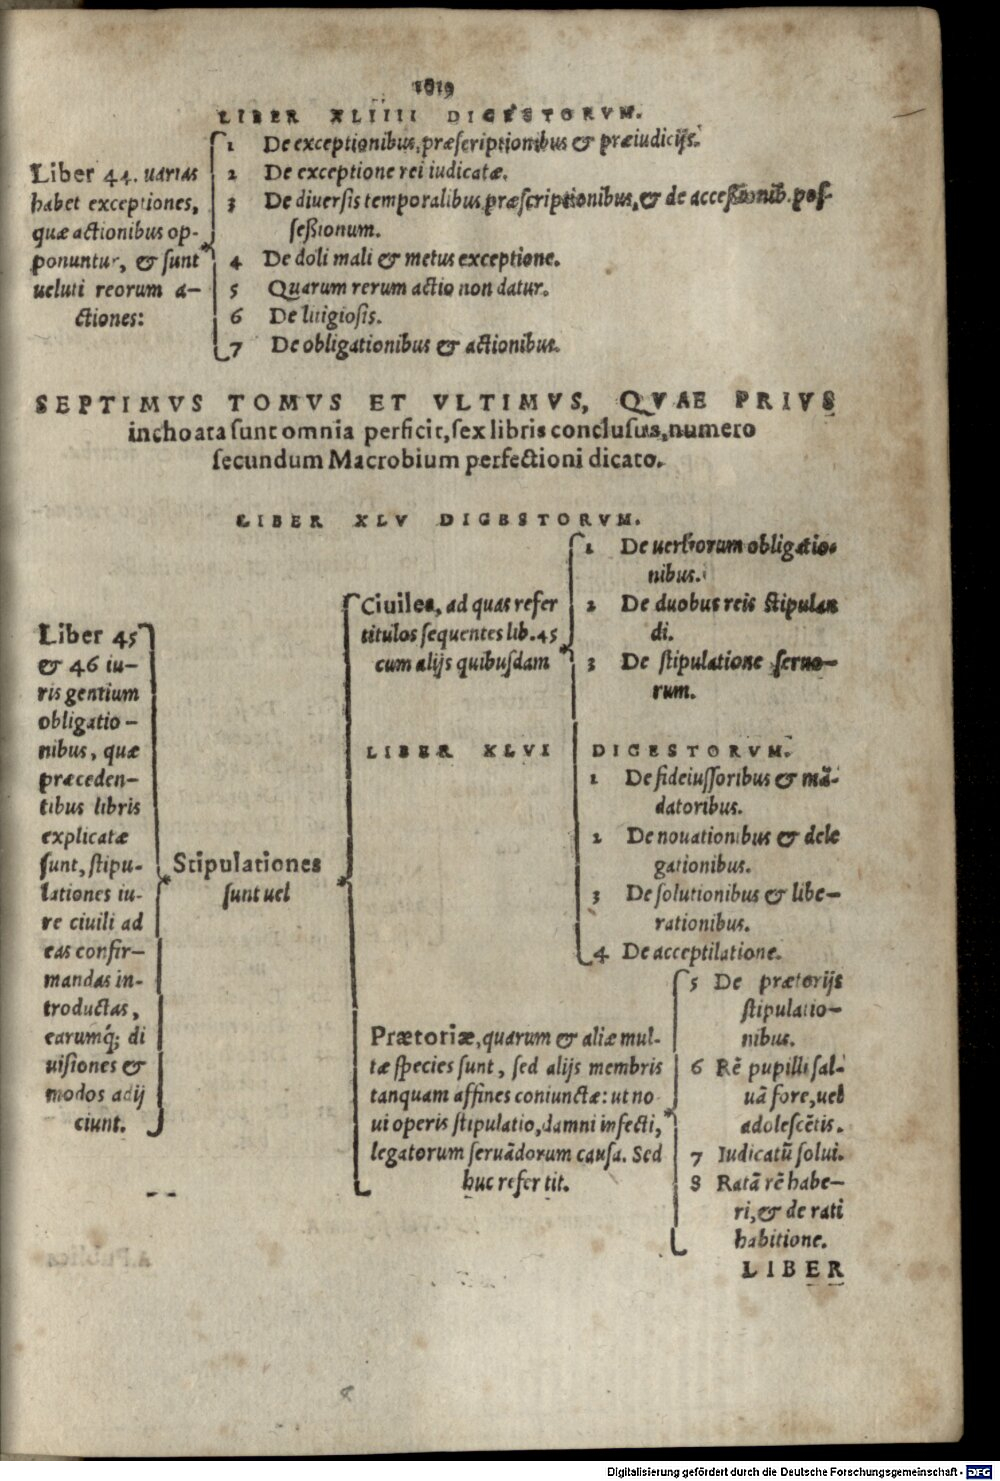 1619
LIBER XLIIII DIGESTORVM.
Liber 44. uarias
habet exceptiones,
quæ actionibus op-
ponuntur, & sunt
ueluti reorum a-
ctiones:
1 De exceptionibus, præscriptionibus & præiudicijs.
2 De exceptione rei iudicatæ.
3 De diuersis temporalibus præscriptionibus, & de accessionib. pos-
sessionum.
4 De doli mali & metus exceptione.
5 Quarum rerum actio non datur.
6 De litigiosis.
7 De obligationibus & actionibus.
SEPTIMVS TOMVS ET VLTIMVS, QVAE PRIVS
inchoata sunt omnia perficit, sex libris conclusus, numero
secundum Macrobium perfectioni dicato.
LIBER XLV DIGESTORVM.
Liber 45
& 46 iu-
ris gentium
obligatio-
nibus, quæ
præceden-
tibus libris
explicatæ
sunt, stipu-
lationes iu-
re ciuili ad
eas confir-
mandas in-
troductas,
earumq́; di
uisiones &
modos adij
ciunt.
Stipulationes
sunt uel
Ciuiles, ad quas refer
titulos sequentes lib. 45
cum alijs quibusdam
1 De uerborum obligatio-
nibus.
2 De duobus reis stipulan
di.
3 De stipulatione seruo-
rum.
LIBER XLVI DIGESTORVM.
1 De fideiussoribus & mā-
datoribus.
2 De nouationibus & dele
gationibus.
3 De solutionibus & libe-
rationibus.
4 De acceptilatione.
Prætoriæ, quarum & aliæ mul-
tæ species sunt, sed alijs membris
tanquam affines coniunctæ: ut no
ui operis stipulatio, damni infecti,
legatorum seruādorum causa. Sed
huc refer tit.
5 De prætorijs
stipulatio-
nibus.
6 Rē pupilli sal-
uā fore, uel
adolescētis.
7 Iudicatū solui.
8 Ratā rē habe-
ri, & de rati
habitione.
LIBER
Digitalisierung gefördert durch die Deutsche Forschungsgemeinschaft - DFG